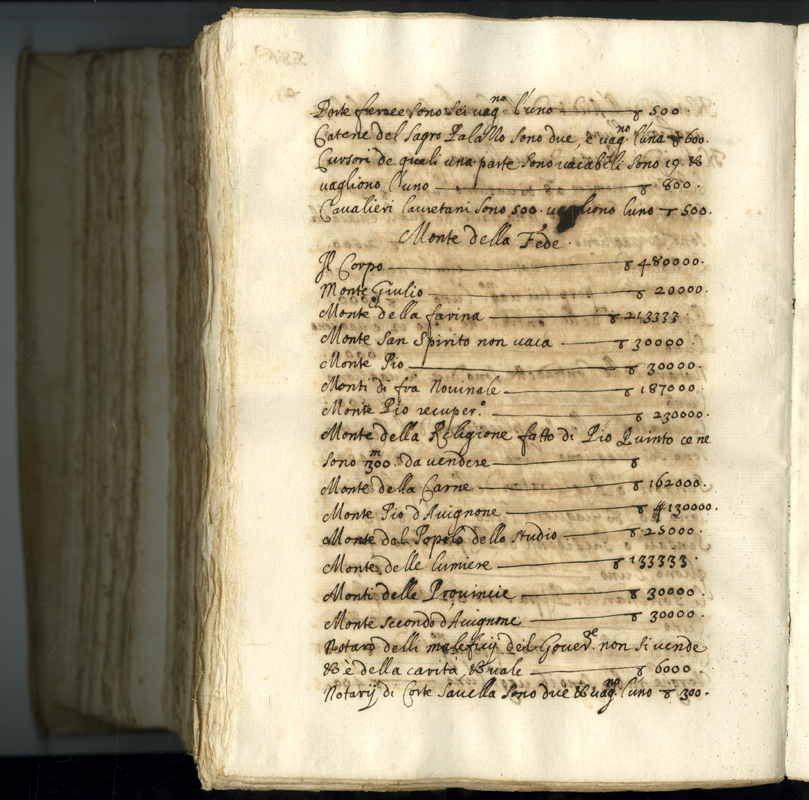 Porte ferree sono sei uag.no l'uno — ꝟ 500.
Catene del Sagro Palazzo sono due, è uag.no l'una ꝟ 600.
Cursori de quali una parte sono uacabili sono 19. &
uagliono l'uno — ꝟ 800.
Caualieri Lauretani sono 500. uagliono luno — ꝟ 500.
Monte della Fede.
Il Corpo — ꝟ 480000.
Monte Giulio — ꝟ 20000.
Monte della farina — ꝟ 213333.
Monte San Spirito non uaca — ꝟ 30000.
Monte Pio — ꝟ 30000.
Monti di fra Nouinale — ꝟ 187000.
Monte Pio recuper.o — ꝟ 230000.
Monte della Religione fatto di Pio Quinto ce ne
sono 300.m da uendere — ꝟ
Monte della Carne — ꝟ 162000.
Monte Pio d'Auignone — ꝟ 130000.
Monte dal Popolo dello studio — ꝟ 25000.
Monte delle lumiere — ꝟ 133333.
Monti delle Prouincie — ꝟ 30000.
Monte secondo d'Auignone — ꝟ 30000.
Notaro delli maleficij del Gouer.re non si uende
& è della carità, & uale — ꝟ 6000.
Notarij di Corte Sauella sono due & uag.no l'uno ꝟ 300.